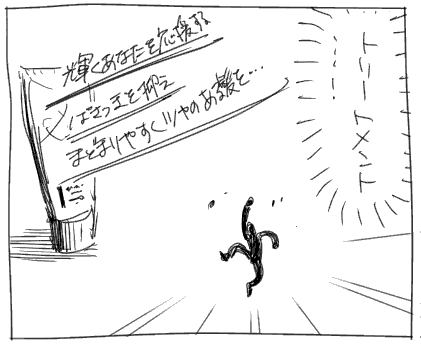 トリートメント
輝くあなたを応援する
ぱさつきを抑え
まとまりやすくツヤのある髪を…